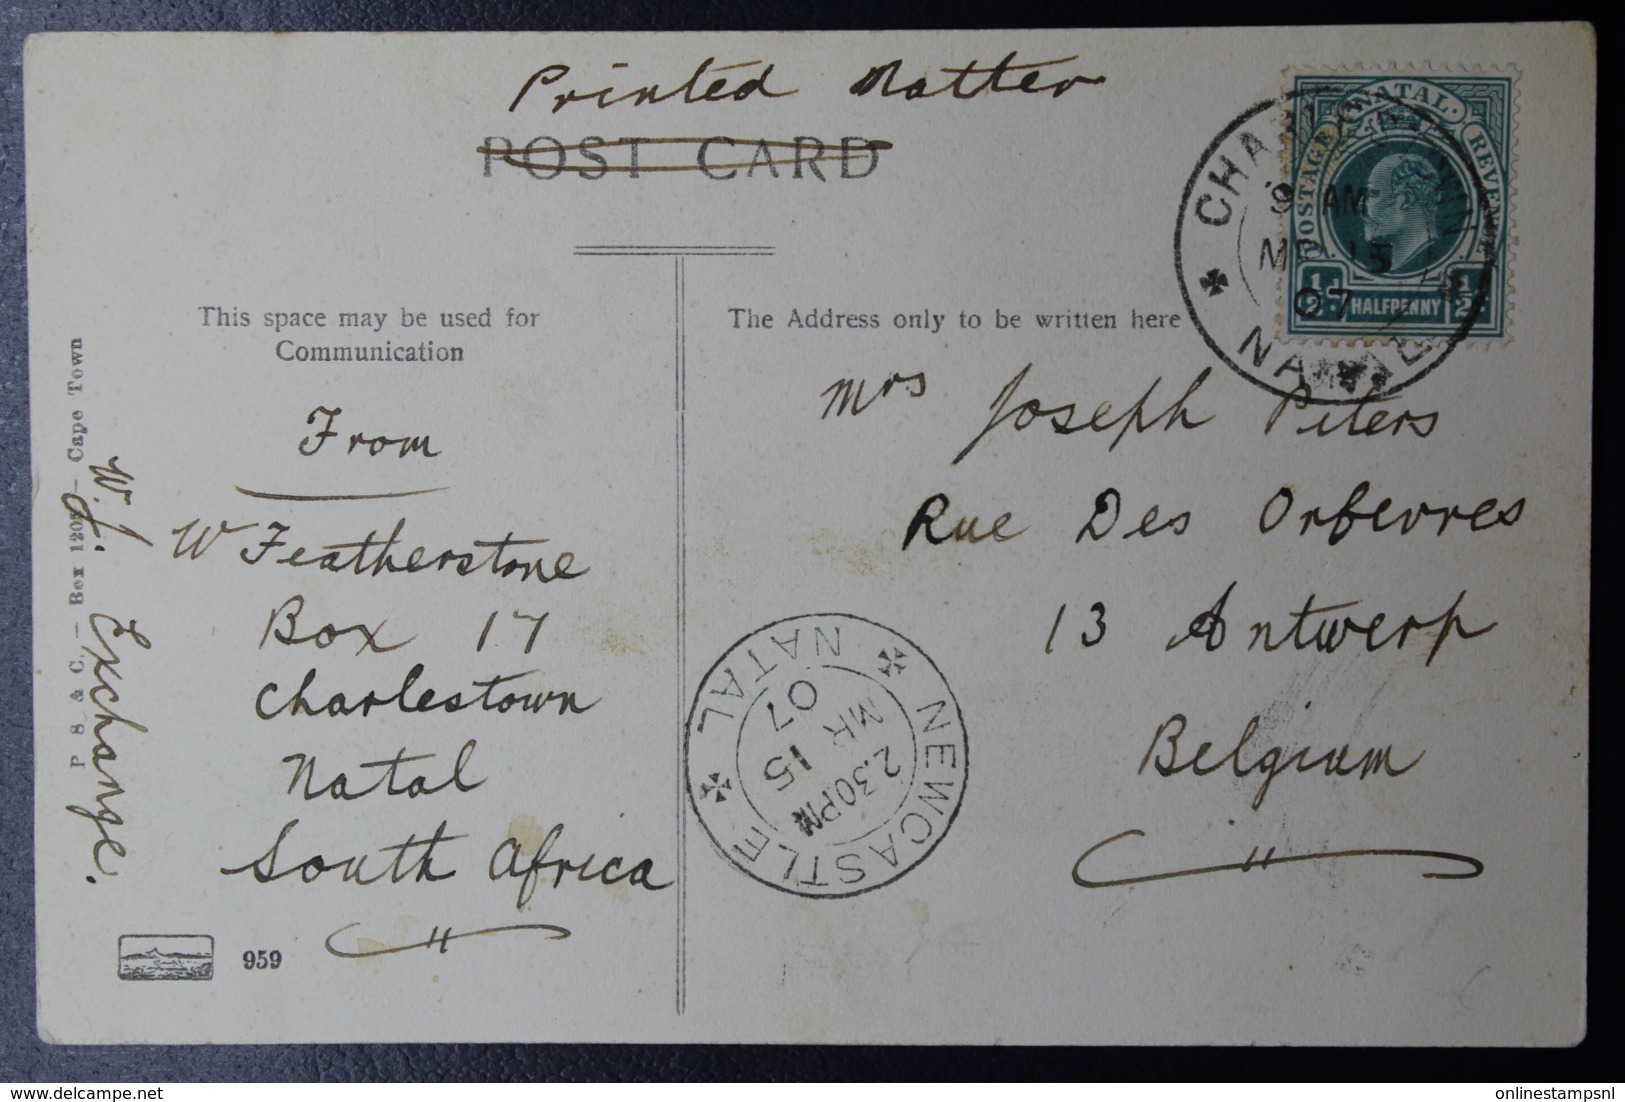 Printed Matter
POST CARD
POSTAGE NATAL REVENUE
½d HALFPENNY ½
9 AM
15
07
This space may be used for
Communication
The Address only to be written here
From
W Featherstone
Box 17
Charlestown
Natal
South Africa
Mrs Joseph Piters
Rue Des Orfevres
13 Antwerp
Belgium
NEWCASTLE
NATAL
2.30PM
MR 15
07
P S. & C. – Box – Cape Town
W. J. Exchange.
959
onlinestampsnl